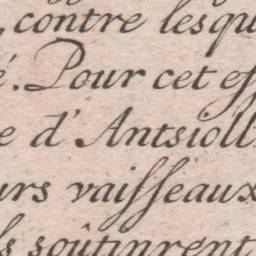 , contre lesqu
é. Pour cet ef
e d'Antsioll
urs vaisseaux
ls soûtinrent